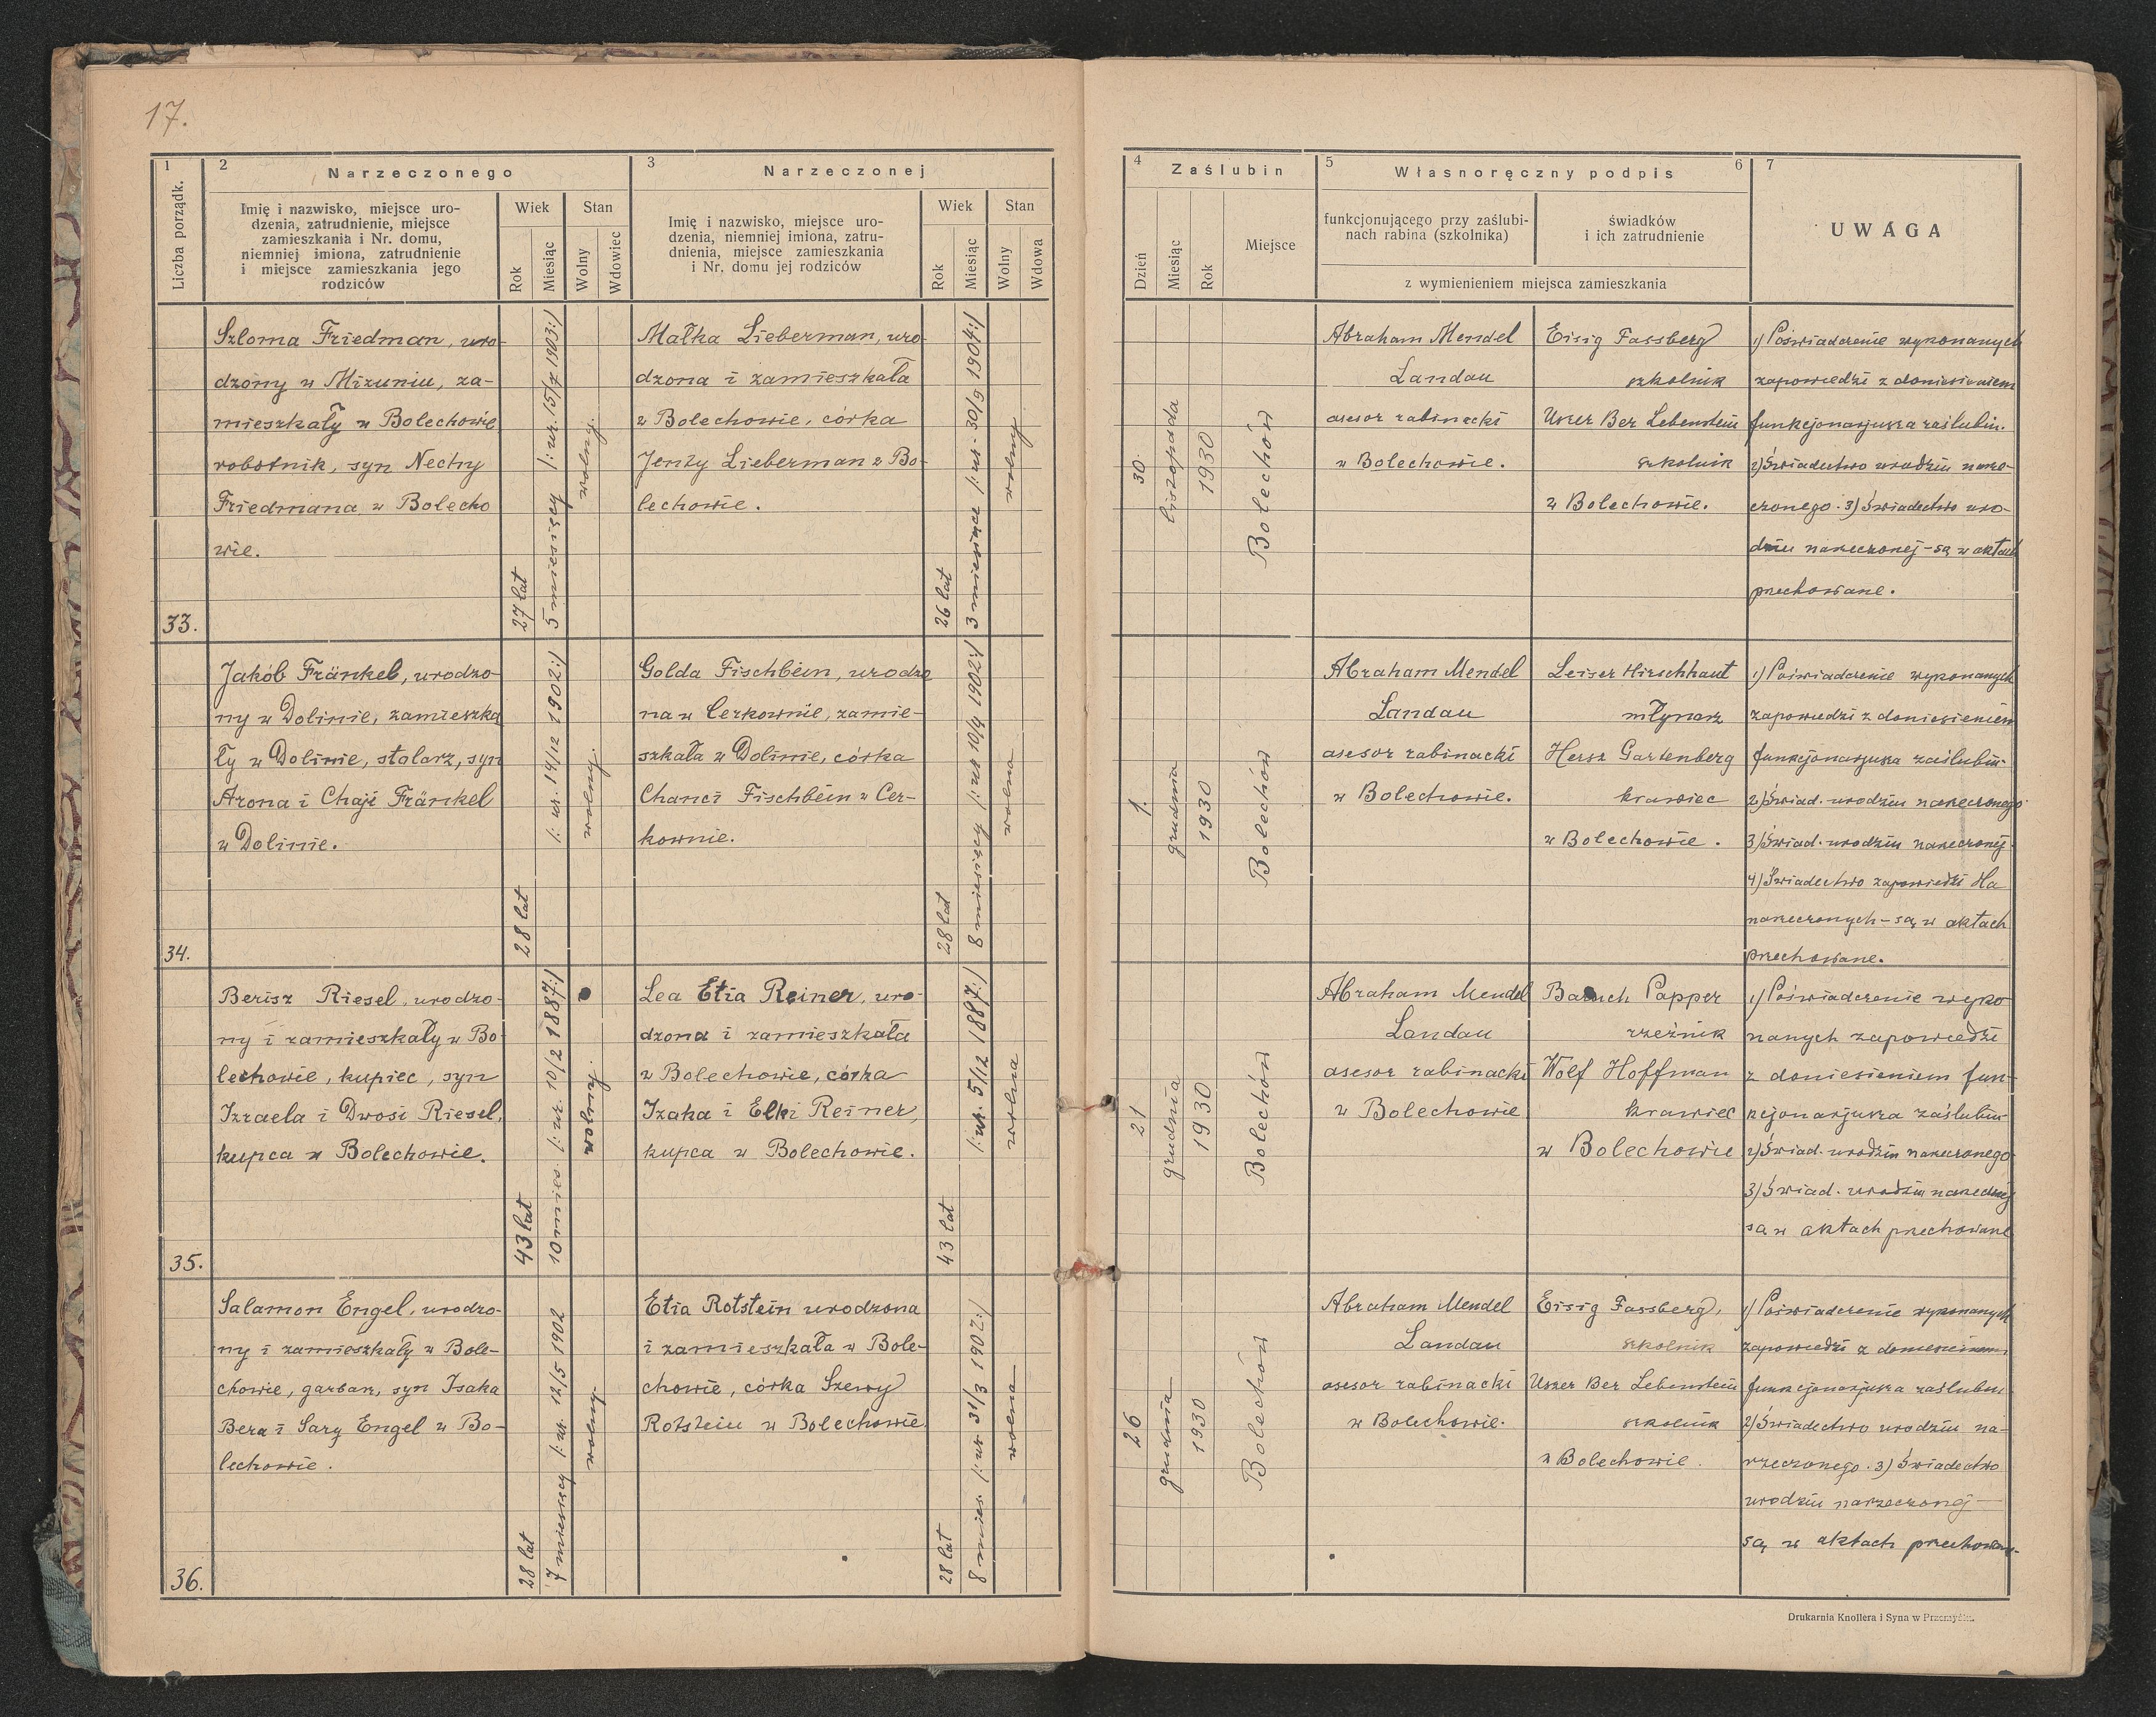 17.
1
2
Narzeczonego
3
Narzeczonej
Liczba porządk.
Imię i nazwisko, miejsce uro-
dzenia, zatrudnienie, miejsce
zamieszkania i Nr. domu,
niemniej imiona, zatrudnienie
i miejsce zamieszkania jego
rodziców
Wiek
Stan
Rok
Miesiąc
Wolny
Wdowiec
Imię i nazwisko, miejsce uro-
dzenia, niemniej imiona, zatru-
dnienia, miejsce zamieszkania
i Nr. domu jej rodziców
Wiek
Stan
Rok
Miesiąc
Wolny
Wdowa
4
Zaślubin
5
Własnoręczny podpis
6
7
Dzień
Miesiąc
Rok
Miejsce
funkcjonującego przy zaślubi-
nach rabina (szkolnika)
świadków
i ich zatrudnienie
z wymienieniem miejsca zamieszkania
UWAGA
33.
Szloma Friedman, uro-
dzony w Mizuniu, za-
mieszkały w Bolechowie,
robotnik, syn Nechy
Friedmana w Bolecho
wie.
27 lat
5 miesięcy /: ur. 15/7 1903:/
wolny.
Małka Lieberman, uro
dzona i zamieszkała
w Bolechowie, córka
Jenty Lieberman z Bo-
lechowie.
26 lat
3 miesiące /: ur - 30/9 1904:/
wolny
30.
listopada
1930
Bolechów
Abraham Mendel
Landau
asesor rabinacki
w Bolechowie.
Eisig Fassberg
szkolnik
Uszer Ber Lebenstein
szkolnik
w Bolechowie.
1) Poświadczenie wykonanych
zapowiedzi z doniesieniem
funkcjonarjusza zaślubin.
2) Świadectwo urodzin narze-
czonego. 3) Świadectwo uro-
dzin narzeczonej - są w aktach
przechowane.
34.
Jakób Fränkel, urodzo-
ny w Dolinie, zamieszka
ły w Dolinie, stolarz, syn
Arona i Chaji Fränkel
w Dolinie.
28 lat
/: ur. 14/12 1902:/
wolny.
Golda Fischbein, urodzo
na w Cerkownie, zamie-
szkała w Dolinie, córka
Chanci Fischbein w Cer-
kownie.
28 lat
8 miesięcy /: ur 10/4 1902:/
wolna
1.
grudnia
1930
Bolechów
Abraham Mendel
Landau
asesor rabinacki
w Bolechowie.
Leiser Hirschhaut
młynarz
Hersz Gartenberg
krawiec
w Bolechowie.
1) Poświadczenie wykonanych
zapowiedzi z doniesieniem
funkcjonarjusza zaślubin-
2) Świad. urodzin narzeczonego
3) Świad. urodzin narzeczonej
4) Świadectwo zapowiedzi
narzeczonych - są w aktach
przechowane.
35.
Berisz Riesel, urodzo-
ny i zamieszkały w Bo-
lechowie, kupiec, syn
Izraela i Dwosi Riesel,
kupca w Bolechowie.
43 lat
10 mies. /: ur. 10/2 1887:/
wolny.
Lea Etia Reiner, uro-
dzona i zamieszkała
w Bolechowie, córka
Izaka i Elki Reiner,
kupca w Bolechowie.
43 lat
/: ur. 5/12 1887:/
wolna
21
grudnia
1930
Bolechów
Abraham Mendel
Landau
asesor rabinacki
w Bolechowie
Baruch Papper
rzeźnik
Wolf Hoffman
krawiec
w Bolechowie
1) Poświadczenie wyko
nanych zapowiedzi
z doniesieniem fun-
kcjonarjusza zaślubin-
2) Świad. urodzin narzeczonego
3) Świad. urodzin narzeczonej
są w aktach przechowane
36.
Salamon Engel, urodzo-
ny i zamieszkały w Bole-
chowie, garbarz, syn Isaka
Bera i Sary Engel w Bo-
lechowie.
28 lat
7 miesięcy /: ur. 12/5 1902
wolny.
Etia Rotstein urodzona
i zamieszkała w Bole-
chowie, córka Szewy
Rotstein w Bolechowie.
28 lat
8 mies. /: ur 31/3 1902:/
wolna
26
grudnia
1930
Bolechów
Abraham Mendel
Landau
asesor rabinacki
w Bolechowie.
Eisig Fassberg,
szkolnik
Uszer Ber Lebenstein
szkolnik
w Bolechowie.
1) Poświadczenie wykonanych
zapowiedzi z doniesieniem
funkcjonarjusza zaślubin
2) Świadectwo urodzin na-
rzeczonego. 3) Świadectwo
urodzin narzeczonej -
są w aktach przechowane.
Drukarnia Knollera i Syna w Przemyślu.